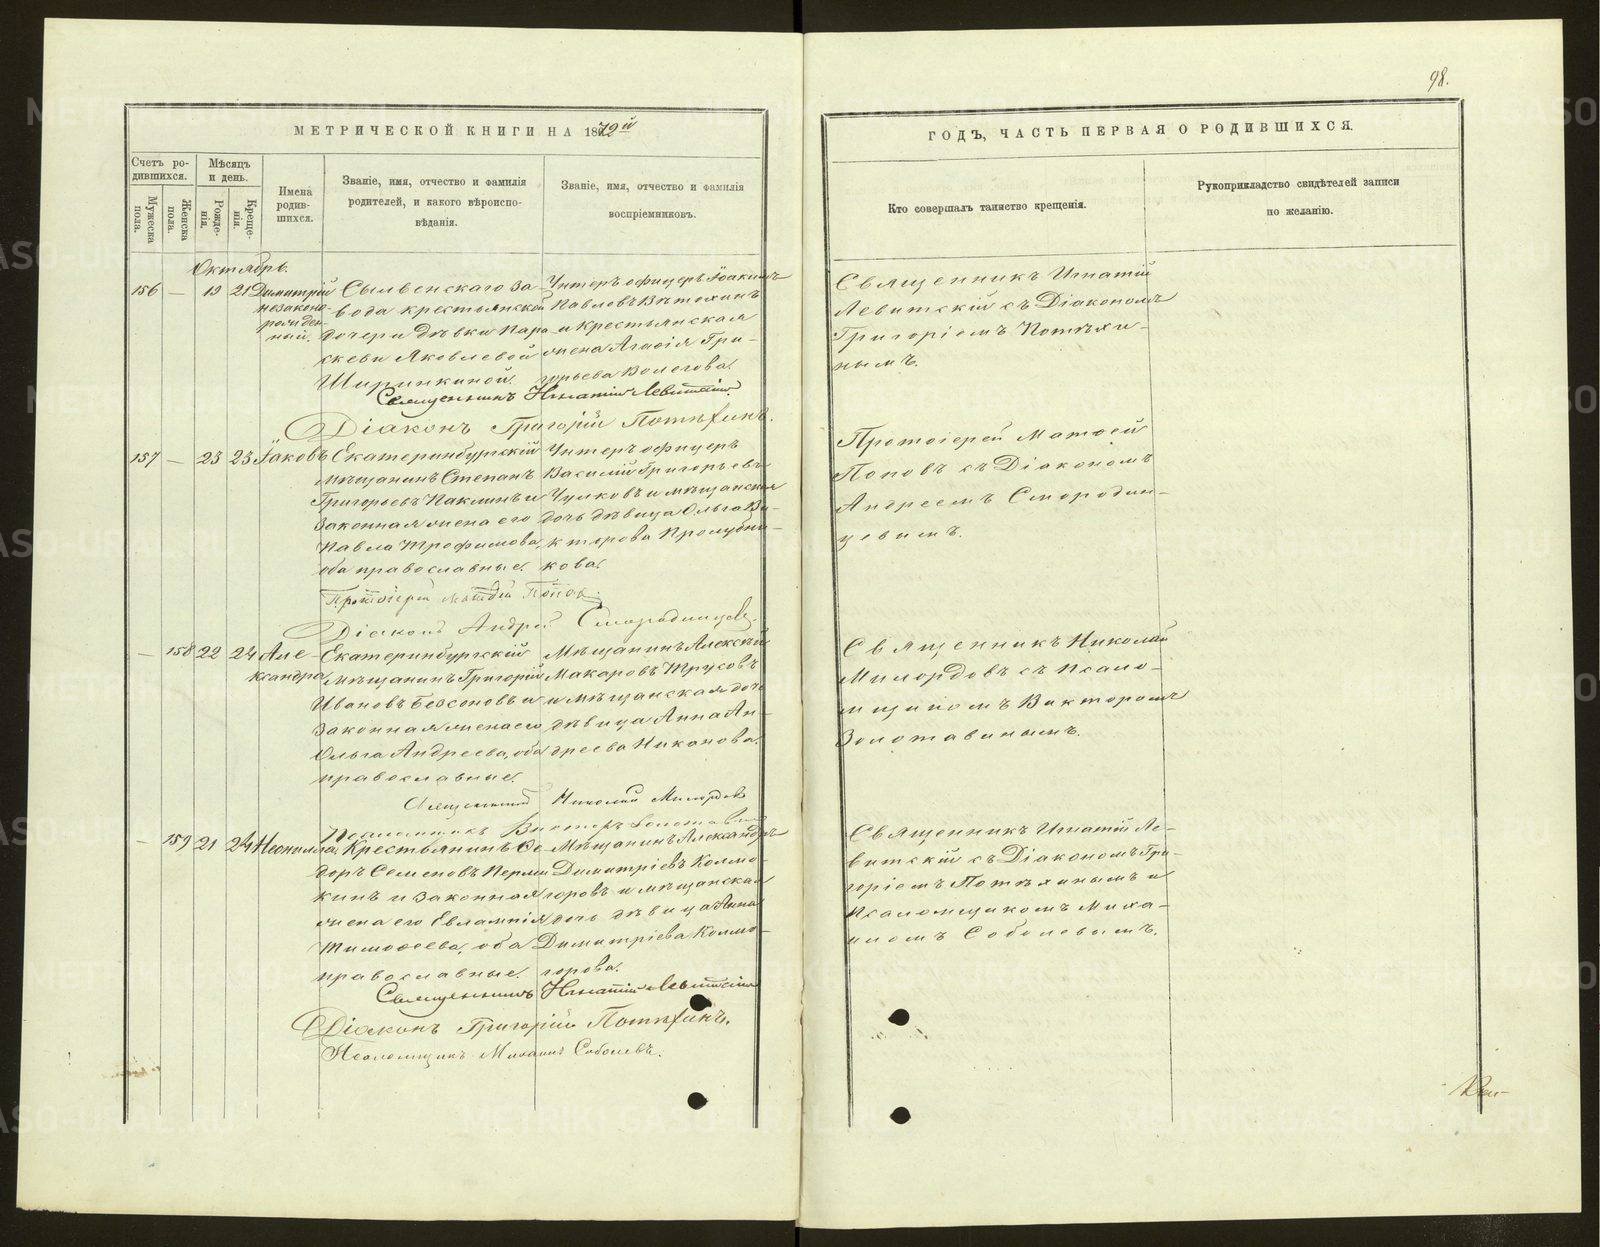 98.
МЕТРИЧЕСКОЙ КНИГИ НА 1872й
ГОДЪ, ЧАСТЬ ПЕРВАЯ О РОДИВШИХСЯ.
Счетъ ро-
дившихся.
Мужеска пола.
Женска пола.
Мѣсяцъ
и день.
Рожде-
нія.
Креще-
нія.
Имена
родив-
шихся.
Званіе, имя, отчество и фамилія
родителей, и какого вѣроиспо-
вѣданія.
Званіе, имя, отчество и фамилія
воспріемниковъ.
Кто совершалъ таинство крещенія.
Рукоприкладство свидѣтелей записи
по желанію.
Октябрь.
156 — 19 21 Димитрій
незаконо-
рожден-
ный.
Сылвенскаго За-
вода крестьянской
дочери дѣвки Пара-
скевы Яковлевой
Ширинкиной.
Унтеръ офицеръ Іоакимъ
Павловъ Вѣтохинъ
и Крестьянская
жена Агафія Гри-
горьева Вологова.
Священникъ Игнатій
Левитскій съ Діакономъ
Григоріемъ Потѣхи-
нымъ.
Священникъ Игнатій Левитскій
Діаконъ Григорій Потѣхинъ.
157 — 23 23 Іаковъ
Екатеринбургскій
мѣщанинъ Степанъ
Григорьевъ Паклинъ и
Законная жена его
Павла Трофимова,
оба православные.
Унтеръ офицеръ
Василій Григорьевъ
Чулковъ и мѣщанская
дочь дѣвица Ольга Ви-
кторова Пролубни-
кова.
Протоіерей Матѳей
Поповъ съ Діакономъ
Андреемъ Смородин-
цевымъ.
Протоіерей Матѳей Поповъ
Діаконъ Андрей Смородинцевъ
— 158 22 24 Але-
ксандра
Екатеринбургскій
мѣщанинъ Григорій
Ивановъ Безсоновъ и
Законная жена его
Ольга Андреева, оба
православные.
Мѣщанинъ Алексѣй
Макаровъ Трусовъ
и мѣщанская дочь
дѣвица Анна Ан-
дреева Никонова.
Священникъ Николай
Милордовъ съ Псало-
мщикомъ Викторомъ
Золотавинымъ.
Священникъ Николай Милордовъ
Псаломщикъ Викторъ Золотавинъ
— 159 21 24 Неонилла
Крестьянинъ Ѳе-
доръ Семеновъ Перми-
кинъ и Законная
жена его Евлампія
Тимоѳеева, оба
православные.
Мѣщанинъ Александръ
Димитріевъ Колмо-
горовъ и мѣщанская
дочь дѣвица Анна
Димитріева Колмо-
горова.
Священникъ Игнатій Ле-
витскій съ Діакономъ Гри-
горіемъ Потѣхинымъ и
Псаломщикомъ Миха-
иломъ Соболевымъ.
Священникъ Игнатій Левитскій
Діаконъ Григорій Потѣхинъ.
Псаломщикъ Михаилъ Соболевъ.